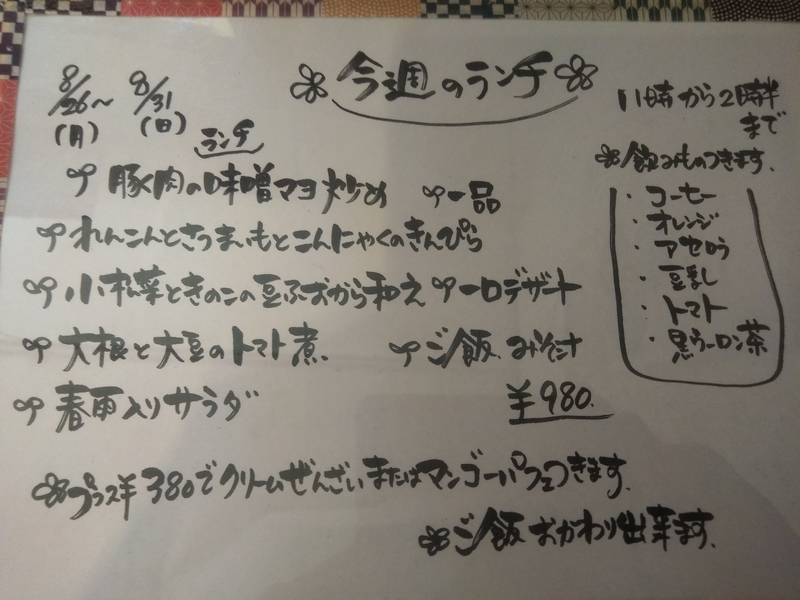 8/26〜 8/31
(月) (日)
❀今週のランチ❀
11時から2時半
まで
ランチ
豚肉の味噌マヨ炒め 一品
れんこんとさつまいもとこんにゃくのきんぴら
小松菜ときのこの豆ふおから和え 一口デザート
大根と大豆のトマト煮. ご飯. みそ汁
春雨入りサラダ
¥980.
❀飲みものつきます.
・コーヒー
・オレンジ
・アセロラ
・豆乳
・トマト
・黒ウーロン茶
❀プラス¥380でクリームぜんざいまたはマンゴーパフェつきます.
❀ご飯おかわり出来ます.